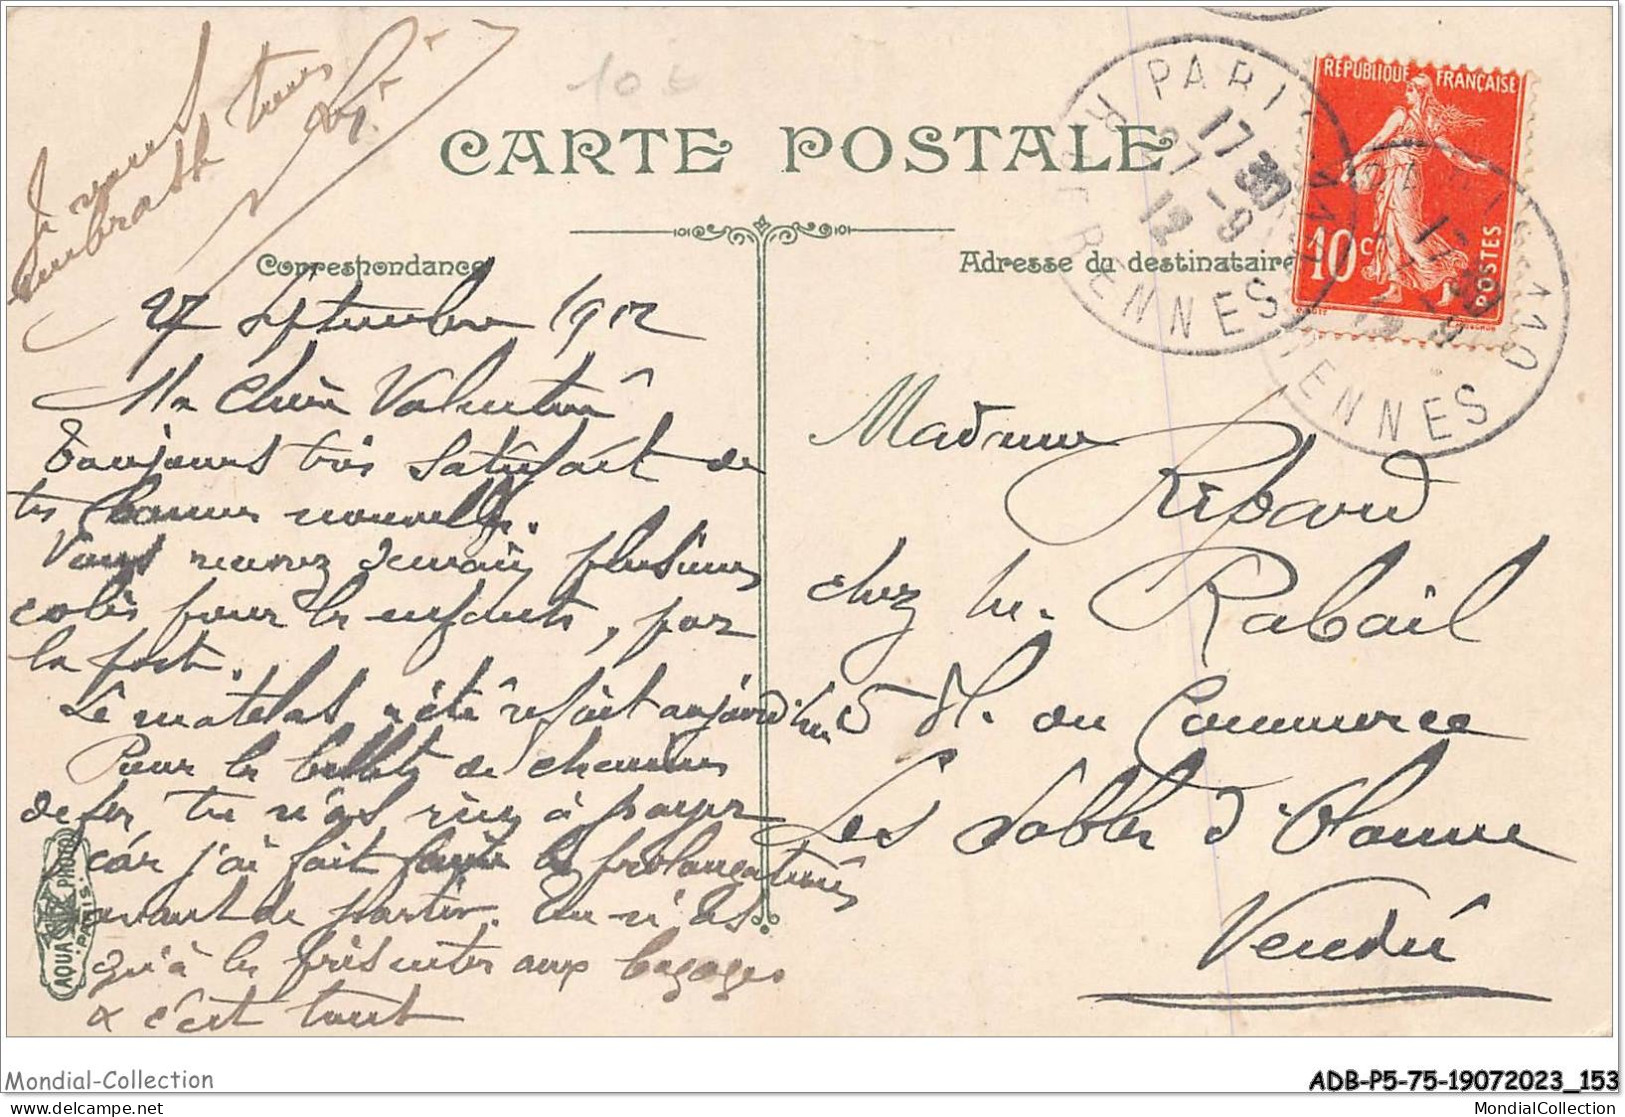 Je vous
embrasse tous
10 €
CARTE POSTALE
Correspondance
Adresse du destinataire
RÉPUBLIQUE FRANÇAISE
10c
POSTES
PARIS 110
17 30
27 - 9
12
R. DE RENNES
PARIS 110
17 30
RENNES
27 Septembre 1912
Ma Chère Valentine
Toujours très satisfait de
tes bonnes nouvelles.
Vous recevrez demain plusieurs
colis pour les enfants, par
la poste.
Le matelas a été refait aujourd'hui
Pour les billets de chemins
de fer tu n'as rien à payer
car j'ai fait faire les prolongations
avant de partir. Tu n'as
qu'à les présenter aux bagages
& c'est tout
Madame
Ribaud
chez M. Rabail
5 Pl. du Commerce
Les Sables d'Olonne
Vendée
AQUA PHOTO
PARIS
Mondial-Collection
ADB-P5-75-19072023_153
www.delcampe.net
MondialCollection